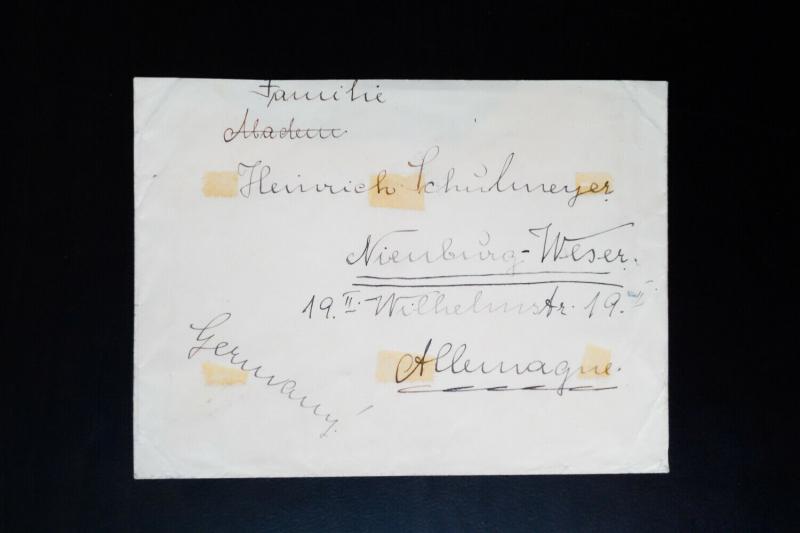 Familie
Heinrich Schulmeyer
Nienburg-Weser.
19.II. Wilhelmstr. 19.II.
Allemagne.
Germany!